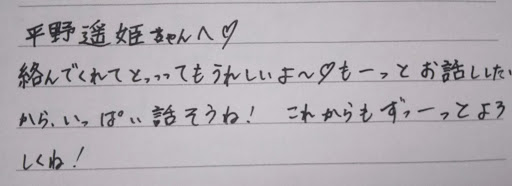 平野遥姫ちゃんへ♡
絡んでくれてとっっってもうれしいよ〜♡もーっとお話ししたい
から、いっぱい話そうね! これからもずっーっとよろ
しくね!